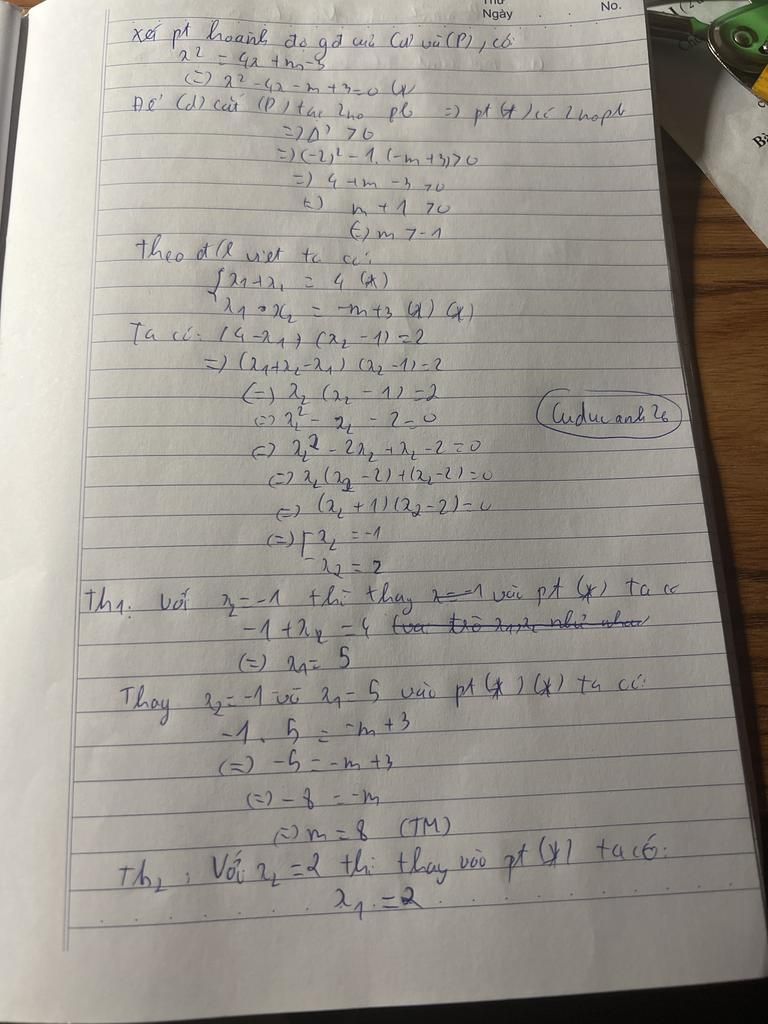 Thứ
Ngày
No.
xét pt hoành độ gđ của (d) và (P), có:
x² = 4x + m - 3
(=) x² - 4x - m + 3 = 0 (*)
Để (d) cắt (P) tại 2 no pb => pt (*) có 2 no pb
=> Δ' > 0
=> (-2)² - 1.(-m+3) > 0
=> 4 + m - 3 > 0
(=) m + 1 > 0
(=) m > -1
Theo đ/l viet ta có:
x₁ + x₂ = 4 (*)
x₁ . x₂ = -m + 3 (*) (*)
Ta có: (4 - x₁) (x₂ - 1) = 2
=> (x₁ + x₂ - x₁) (x₂ - 1) = 2
(=) x₂ (x₂ - 1) = 2
(=) x₂² - x₂ - 2 = 0
Cuducanh26
(=) x₂² - 2x₂ + x₂ - 2 = 0
(=) x₂(x₂ - 2) + (x₂ - 2) = 0
(=) (x₂ + 1) (x₂ - 2) = 0
(=) [ x₂ = -1
x₂ = 2
Th₁: Với x₂ = -1 thì thay x = -1 vào pt (*) ta có
-1 + x₂ = 4
(=) x₁ = 5
Thay x₂ = -1 và x₁ = 5 vào pt (*) (*) ta có:
-1 . 5 = -m + 3
(=) -5 = -m + 3
(=) -8 = -m
(=) m = 8 (TM)
Th₂: Với x₂ = 2 thì thay vào pt (*) ta có:
x₁ = 2